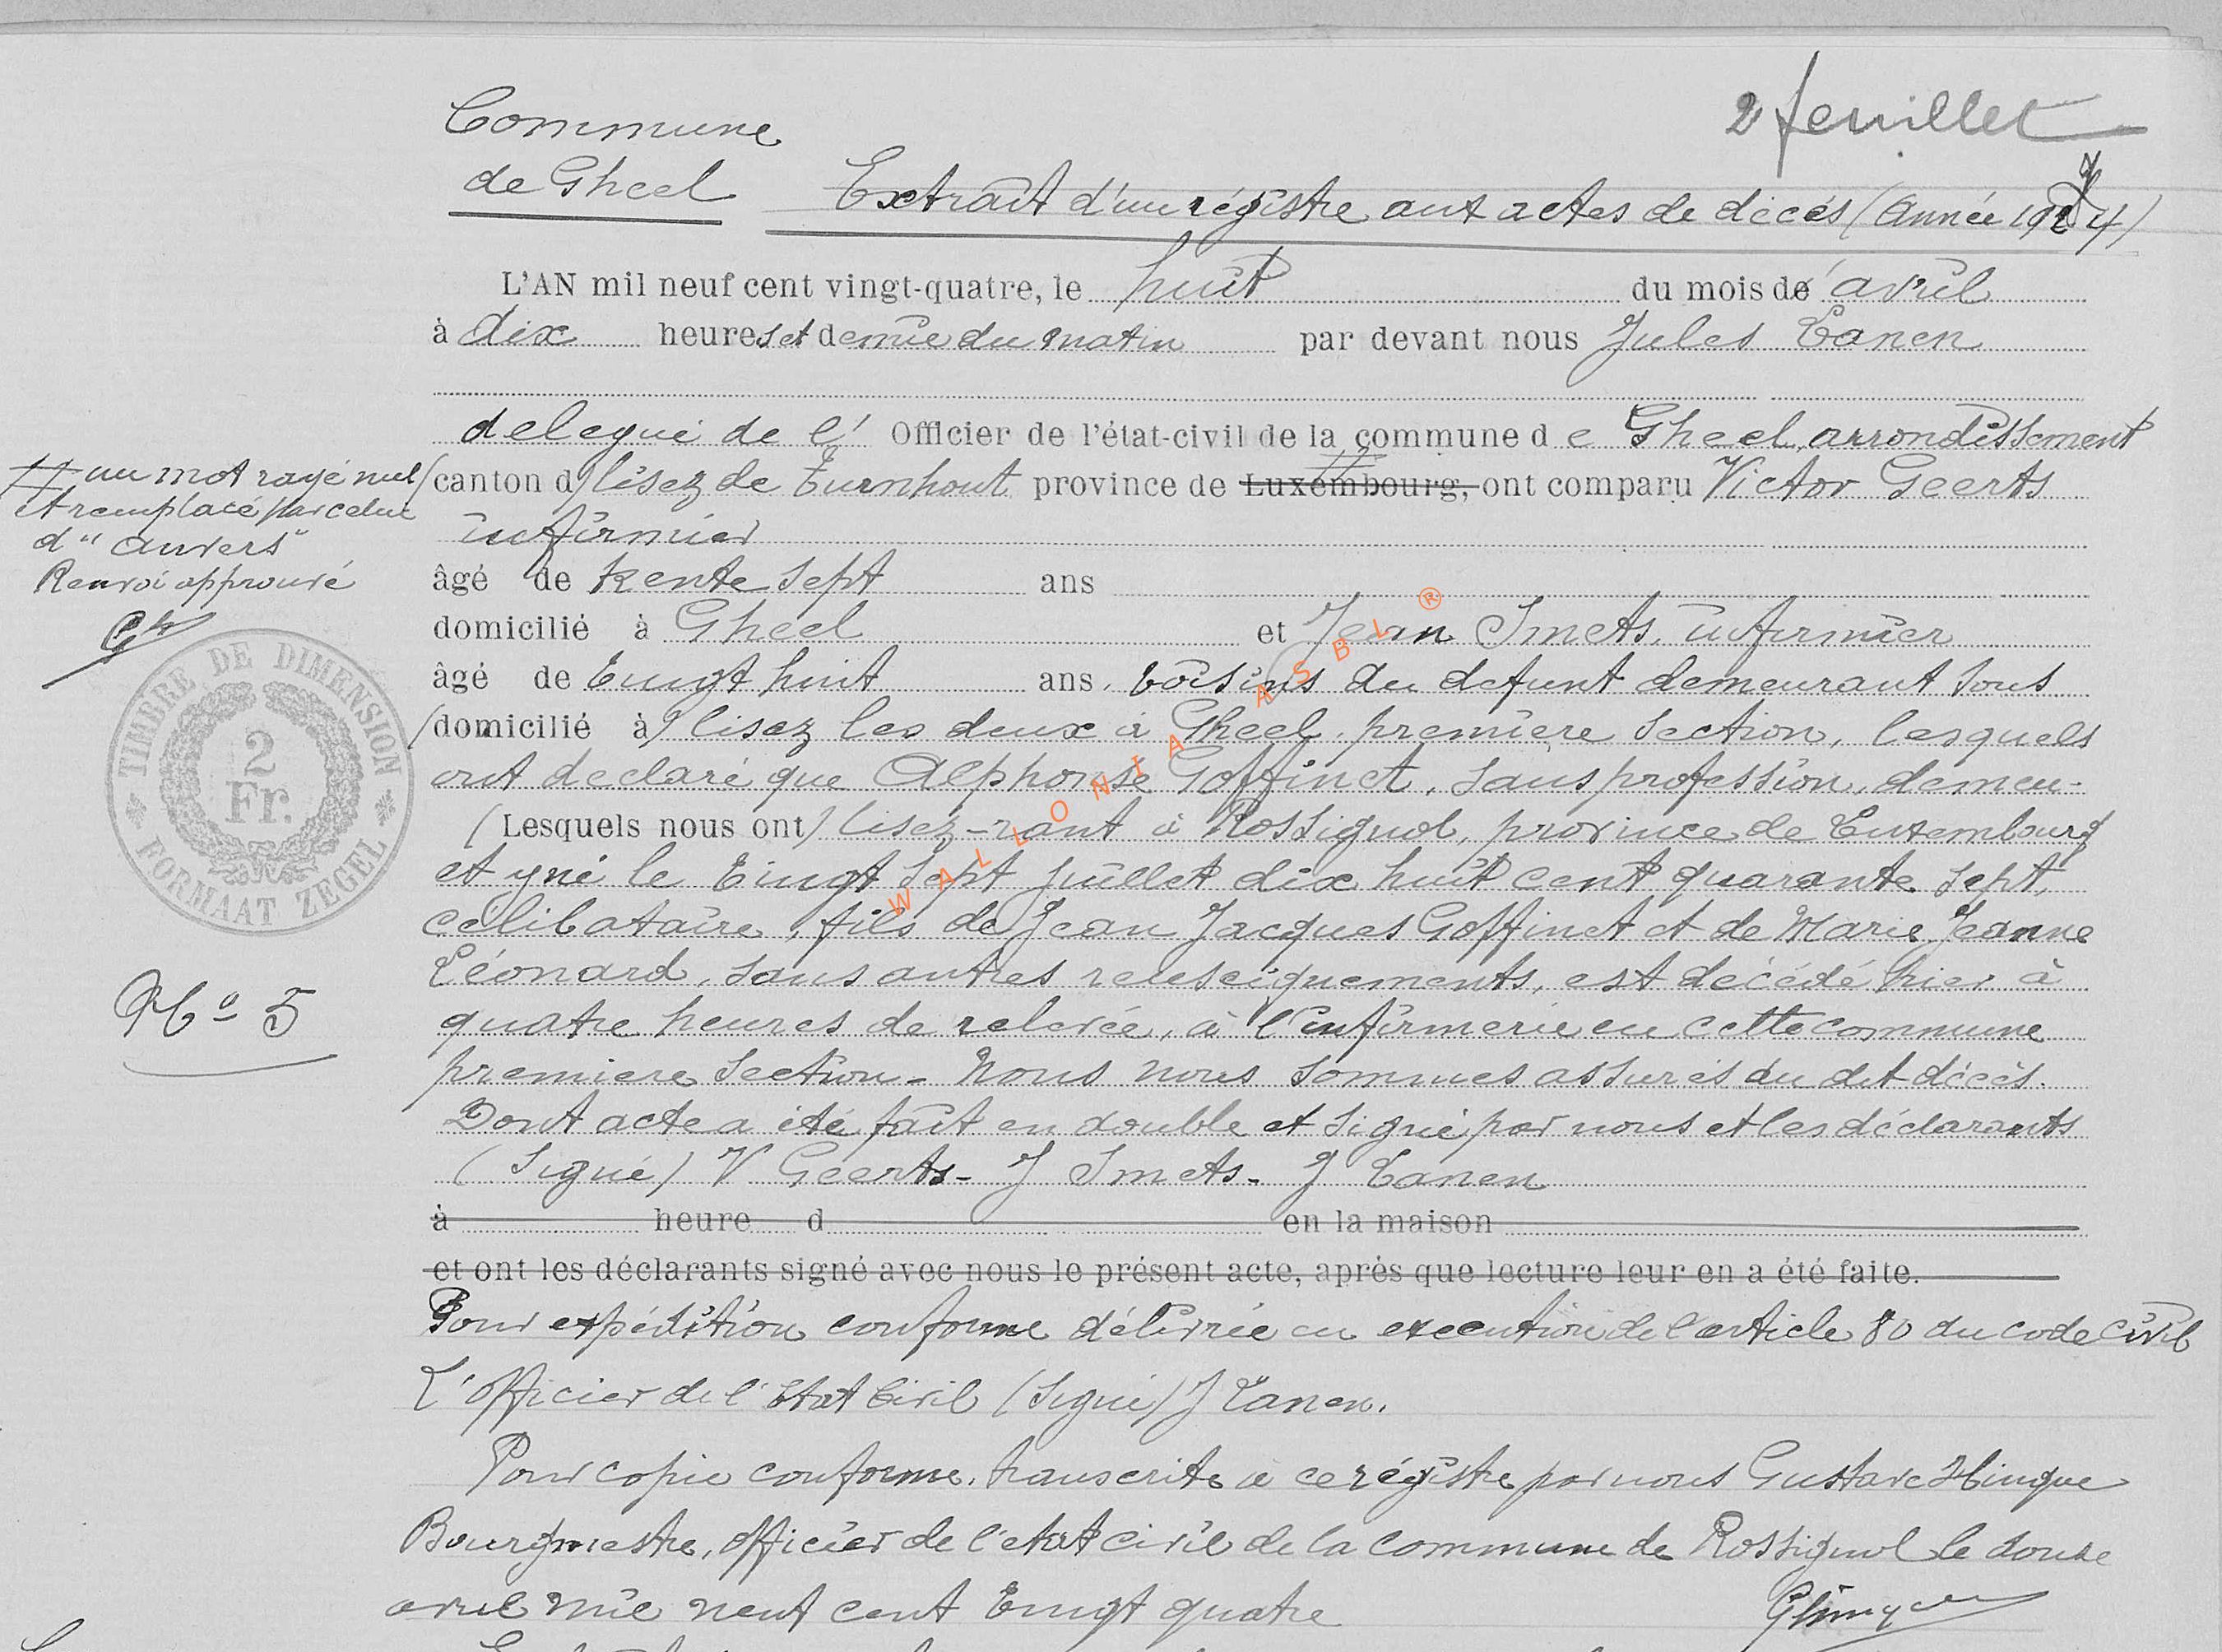 2 feuillet
Commune
de Gheel
Extrait d'un régistre aux actes de décès (année 1924)
L'AN mil neuf cent vingt-quatre, le huit du mois d'avril
à dix heures et demie du matin par devant nous Jules Lanen
delegué de l' Officier de l'état-civil de la commune de Gheel, arrondissement
(canton d) lisez de Turnhout province de Luxembourg, ont comparu Victor Geerts
infirmier
âgé de trente sept ans
domicilié à Gheel et Jean Smets, infirmier
âgé de vingt huit ans, voisins du defunt demeurant tous
(domicilié à) lisez les deux à Gheel, première section, lesquels
ont declaré que Alphonse Goffinet, sans profession, demeu-
(Lesquels nous ont) lisez -rant à Rossignol, province de Luxembourg
et y né le vingt sept juillet dix huit cent quarante sept,
celibataire, fils de Jean Jacques Goffinet et de Marie Jeanne
Léonard, sans autres renseignements, est décédé hier à
quatre heures de relevée, à l'infirmerie en cette commune
premiere section - Nous nous sommes assurés du dit décès.
Dont acte a été fait en double et signé par nous et les déclarants
(Signé) V Geerts - J Smets - J Lanen
à heure d en la maison
et ont les déclarants signé avec nous le présent acte, après que lecture leur en a été faite.
Pour expédition conforme délivrée en execution de l'article 80 du code civil
L'officier de l'Etat Civil (Signé) J Lanen.
Pour copie conforme, transcrite à ce régistre par nous Gustave Hinque
Bourgmestre, officier de l'etat civil de la commune de Rossignol le douze
avril mil neuf cent vingt quatre
GHinque
# un mot rayé nul
et remplacé par celui
d" Anvers"
Renvoi approuvé
GH
TIMBRE DE DIMENSION
2
Fr.
FORMAAT ZEGEL
No 5
WALLONIA ASBL ®